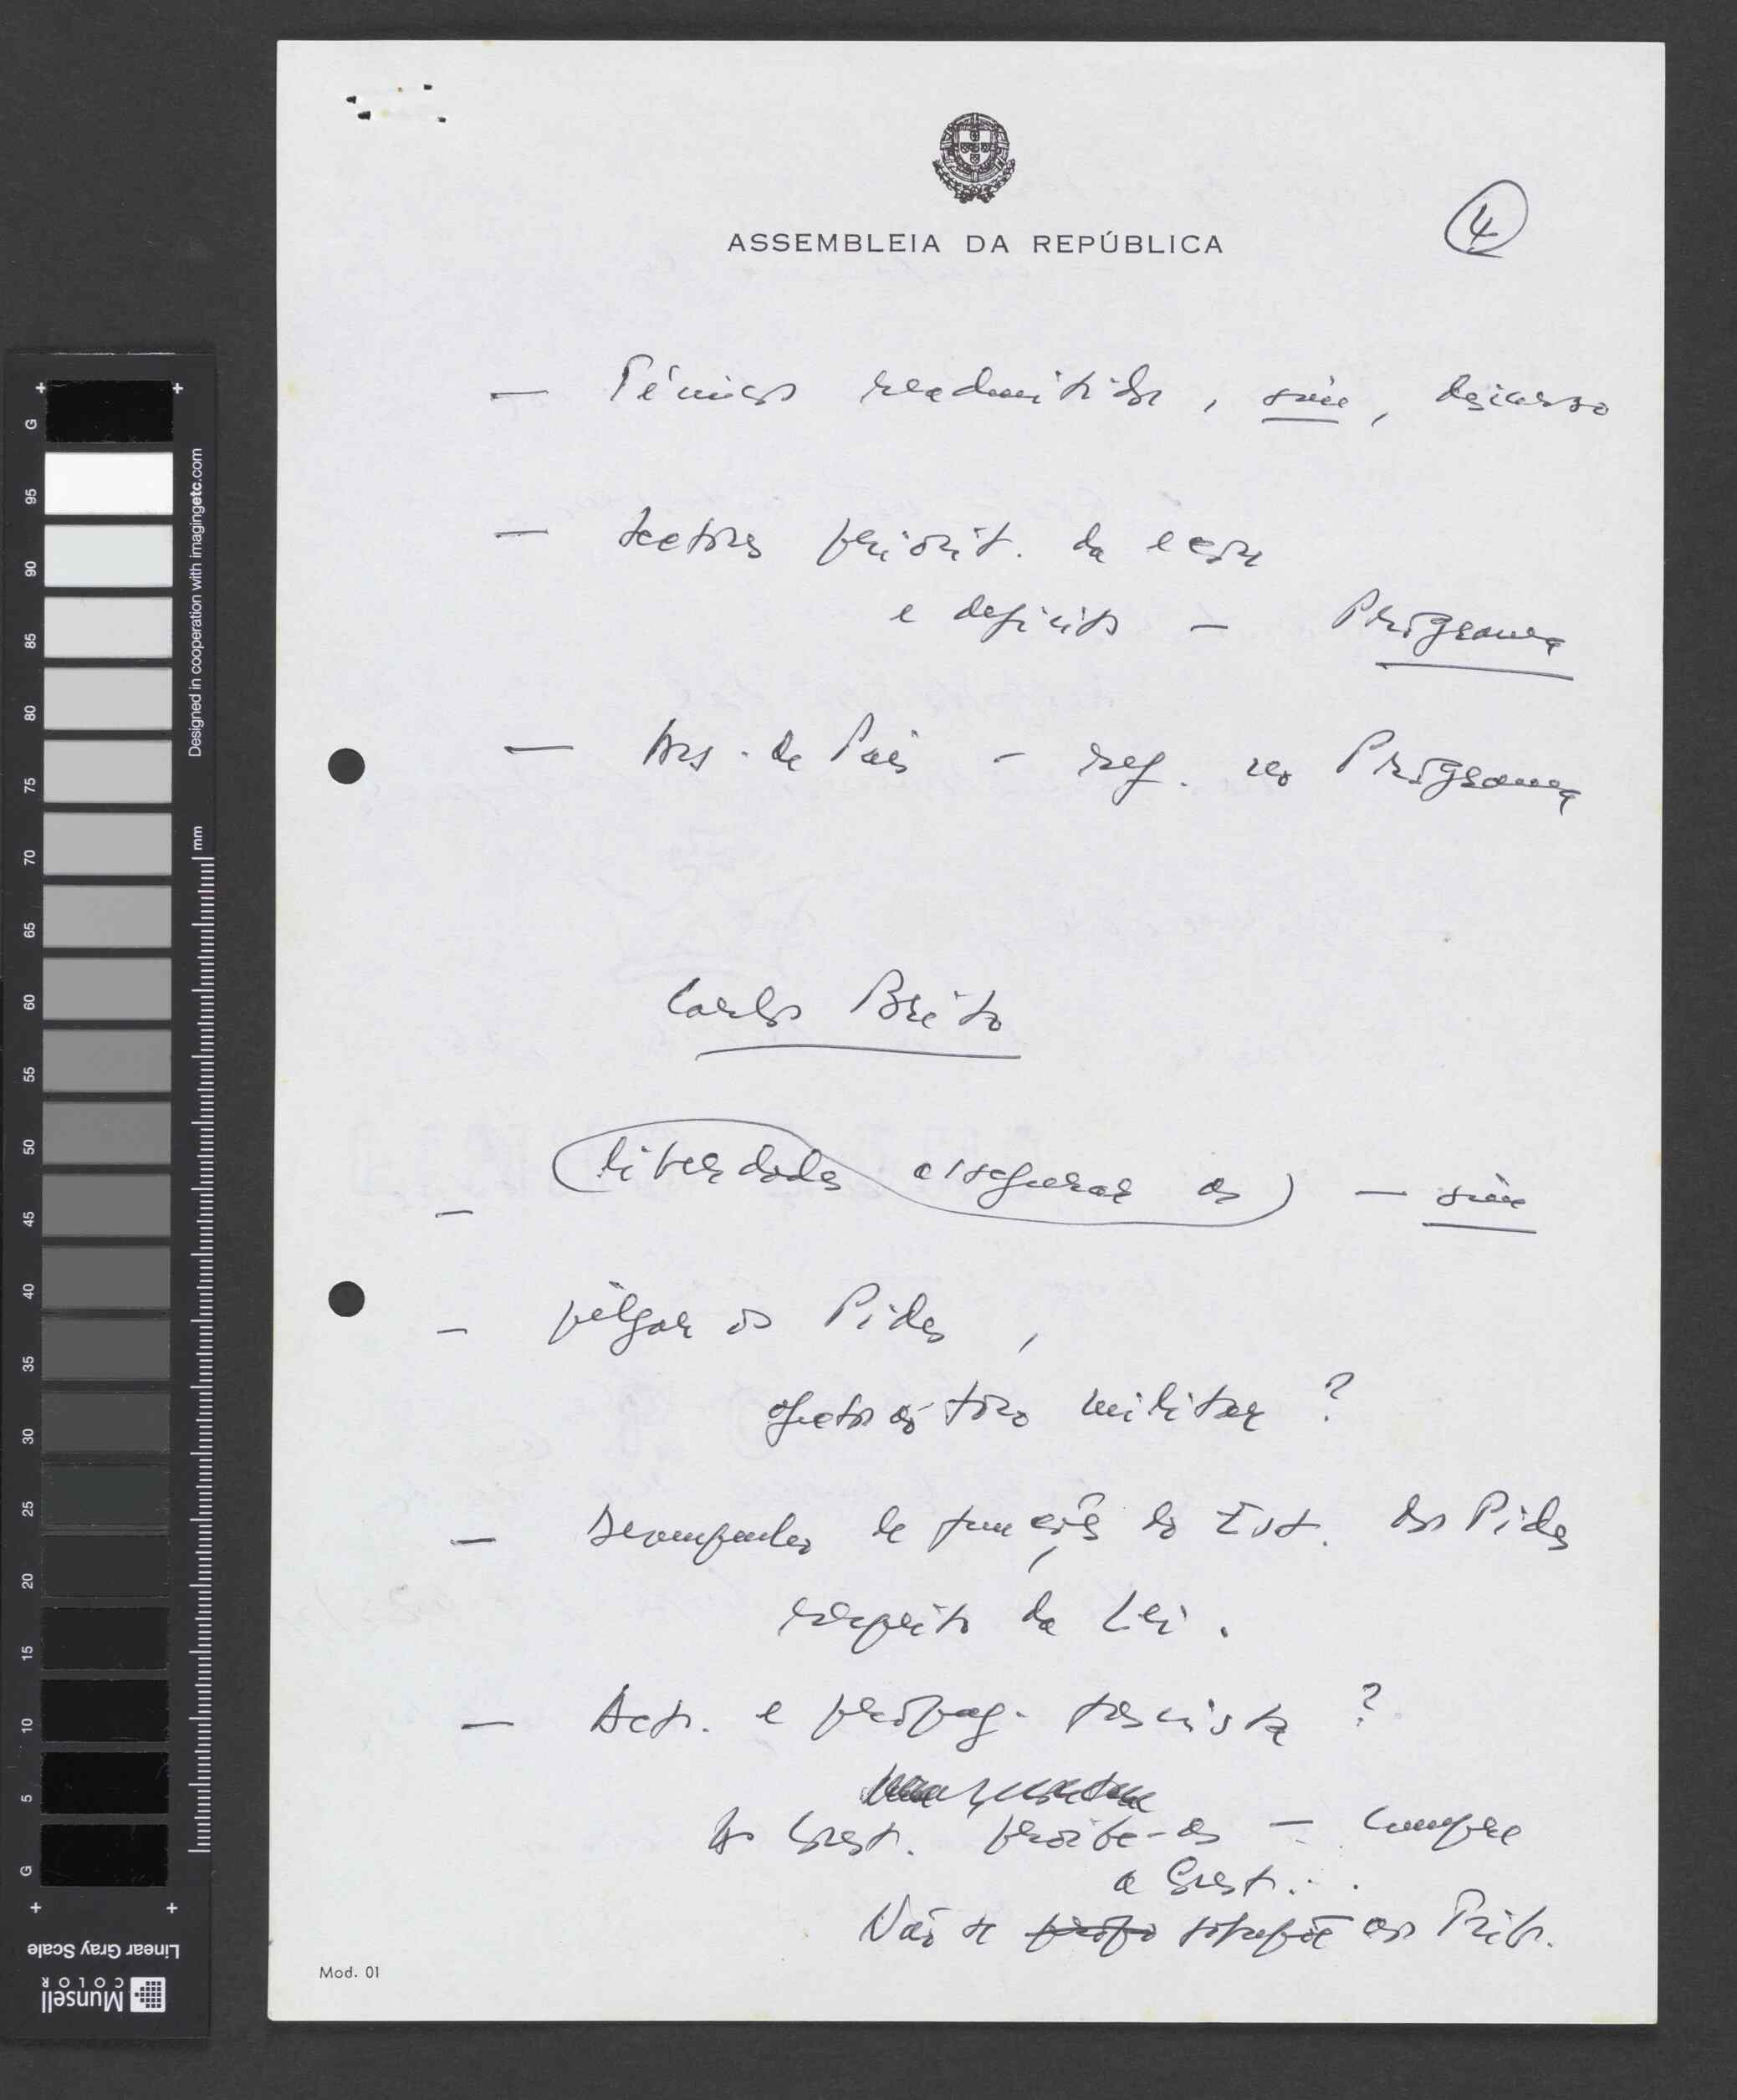 ASSEMBLEIA DA REPÚBLICA
4
— Técnicos readmitidos, sim, discurso
— Sectores priorit. da econ
e deficits — Programa
— Ars. do País – ref. no Programa
Carlos Brito
— Liberdades assegurar as — sim
— julgar os Pides,
afectos ao foro militar?
— Desempenho de funções do Est. dos Pides
respeito da Lei.
— Act. e propag. fascista?
A Const. proíbe-as — Cumpre
a Const...
Não se sobrepõe aos Trib.
Mod. 01
G 95 90 85 80 75 70 65 60 55 50 45 40 35 30 25 20 15 10 5 G
Designed in cooperation with imagingetc.com
mm
Linear Gray Scale
Munsell
COLOR